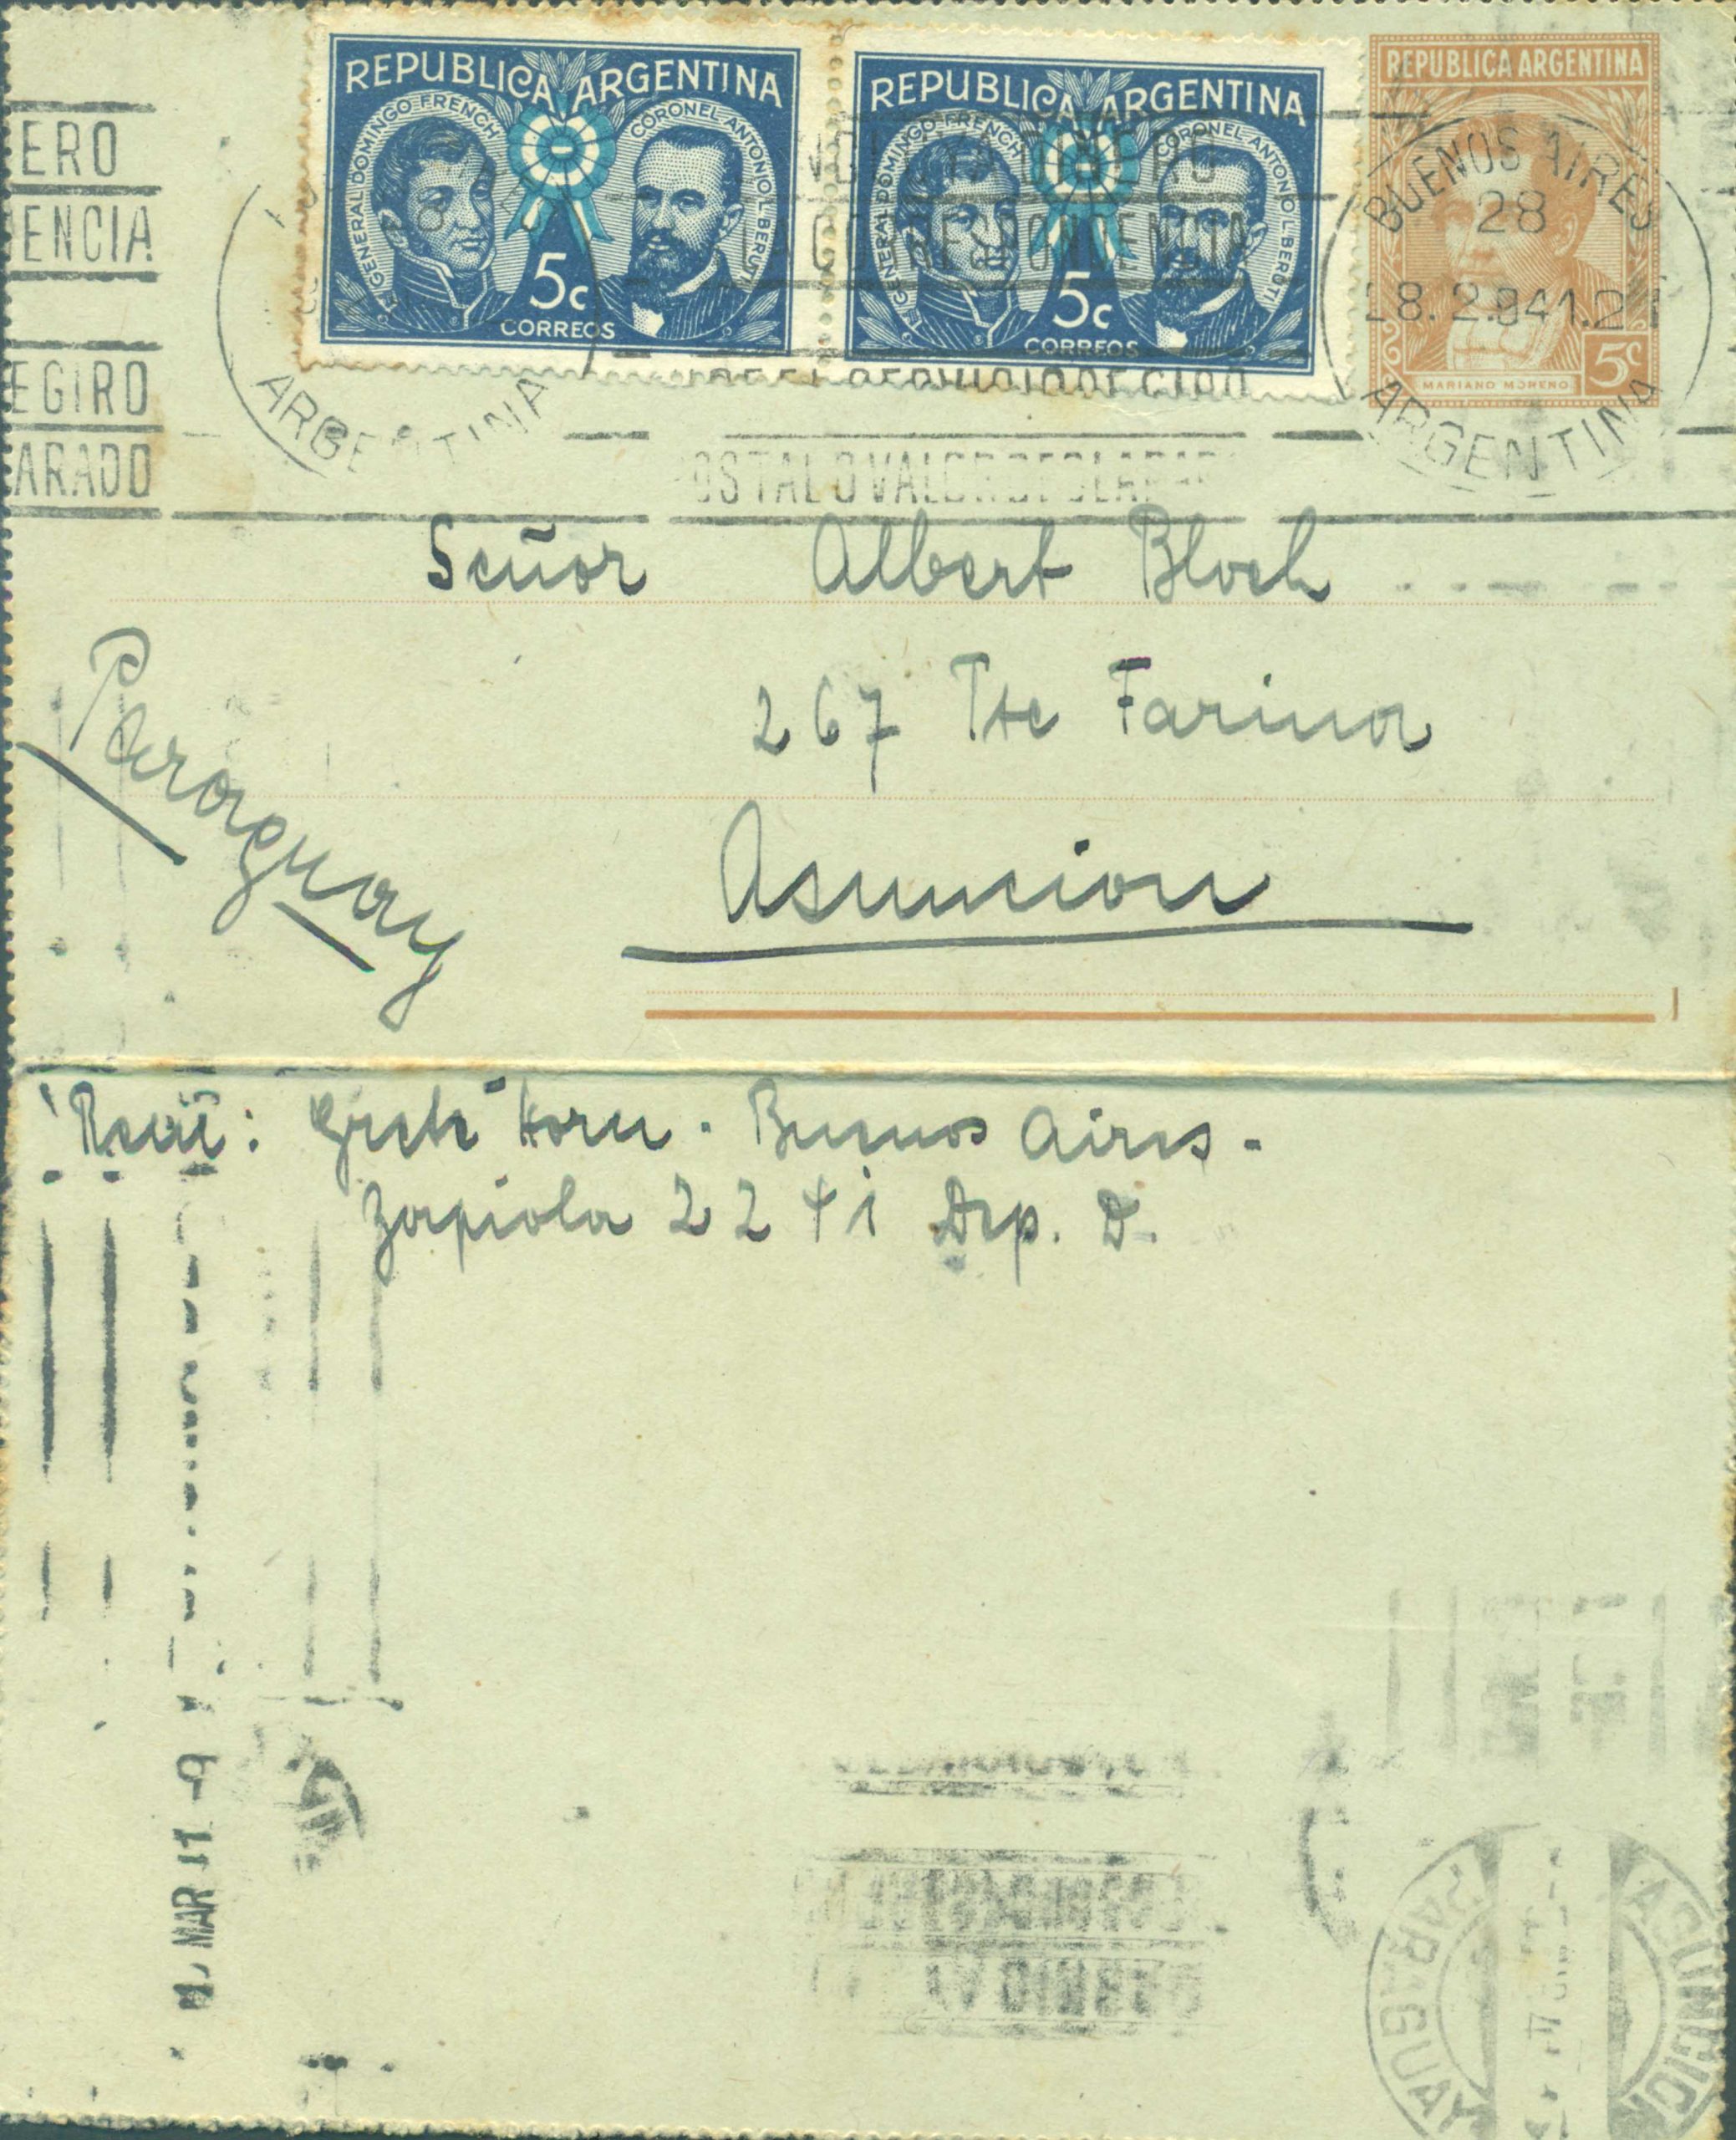 REPUBLICA ARGENTINA
GENERAL DOMINGO FRENCH
CORONEL ANTONIO L. BERUTI
5c
CORREOS
REPUBLICA ARGENTINA
GENERAL DOMINGO FRENCH
CORONEL ANTONIO L. BERUTI
5c
CORREOS
REPUBLICA ARGENTINA
MARIANO MORENO
5c
BUENOS AIRES
28
ARGENTINA
ARGENTINA
ERO
ENCIA
EGIRO
ARADO
DINERO
CORRESPONDENCIA
OSTAL O VALOR DECLARADO
Señor Albert Bloch
267 Tte Farina
Asuncion
Paraguay
Grete Horn. Buenos Aires-
Zapiola 2241 Dep. D.
MAR 11 -9
PARAGUAY
ASUNCIO